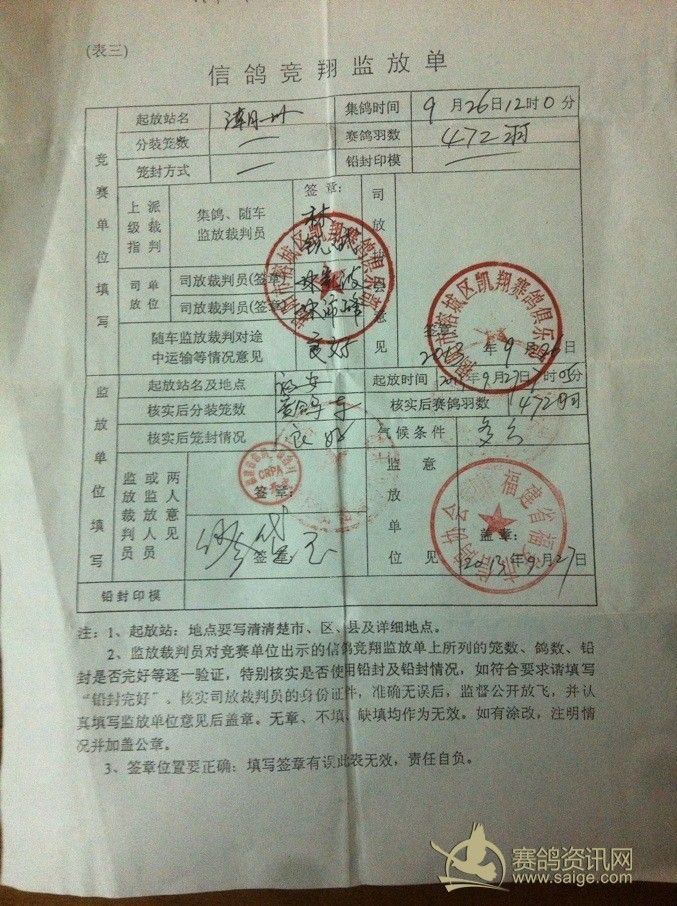 (表三)
信鸽竞翔监放单
竞赛单位填写
起放站名
集鸽时间 9月26日12时0分
分装笼数 一
赛鸽羽数 472羽
笼封方式 一
铅封印模 一
上级指派裁判
集鸽、随车监放裁判员
签章:
司放单位
司放裁判员(签章)
司放裁判员(签章)
随车监放裁判对途中运输等情况意见
良好
签章
2013年9月26日
榕城区凯翔赛鸽俱乐部
榕城区凯翔赛鸽俱乐部
监放单位填写
起放站名及地点
起放时间 2013年9月27日
核实后分装笼数
核实后赛鸽羽数 472羽
核实后笼封情况 良好
气候条件 多云
监放裁判员
或监放人员
两人意见
签章:
签章
CRPA
监放单位意见
福建省
盖章:
2013年9月27日
铅封印模
注:1、起放站:地点要写清清楚市、区、县及详细地点。
2、监放裁判员对竞赛单位出示的信鸽竞翔监放单上所列的笼数、鸽数、铅
封是否完好等逐一验证,特别核实是否使用铅封及铅封情况,如符合要求请填写
“铅封完好”。核实司放裁判员的身份证件,准确无误后,监督公开放飞,并认
真填写监放单位意见后盖章。无章、不填、缺填均作为无效。如有涂改,注明情
况并加盖公章。
3、签章位置要正确:填写签章有误此表无效,责任自负。
赛鸽资讯网
www.saige.com